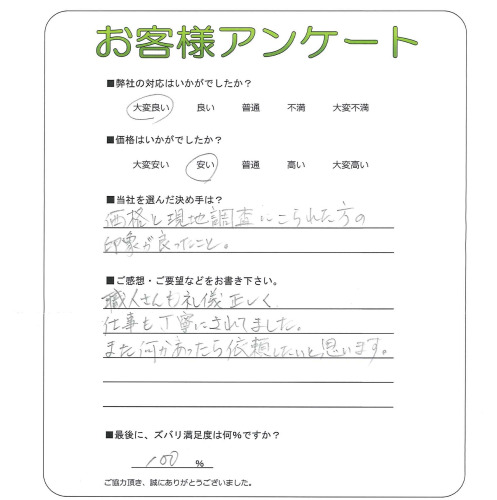 お客様アンケート
■弊社の対応はいかがでしたか？
大変良い 良い 普通 不満 大変不満
■価格はいかがでしたか？
大変安い 安い 普通 高い 大変高い
■当社を選んだ決め手は？
価格と現地調査にこられた方の
印象が良ったこと。
■ご感想・ご要望などをお書き下さい。
職人さんも礼儀正しく
仕事も丁寧にされてました。
また何かあったら依頼したいと思います。
■最後に、ズバリ満足度は何％ですか？
100 ％
ご協力頂き、誠にありがとうございました。